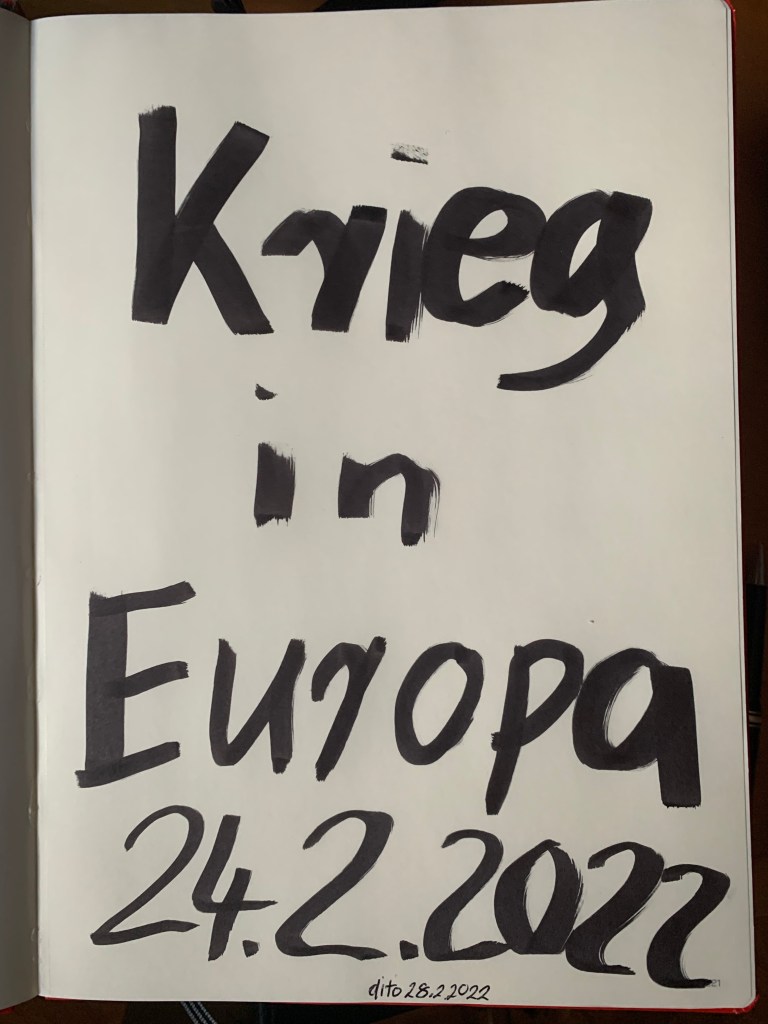 Krieg
in
Europa
24.2.2022
dito 28.2.2022